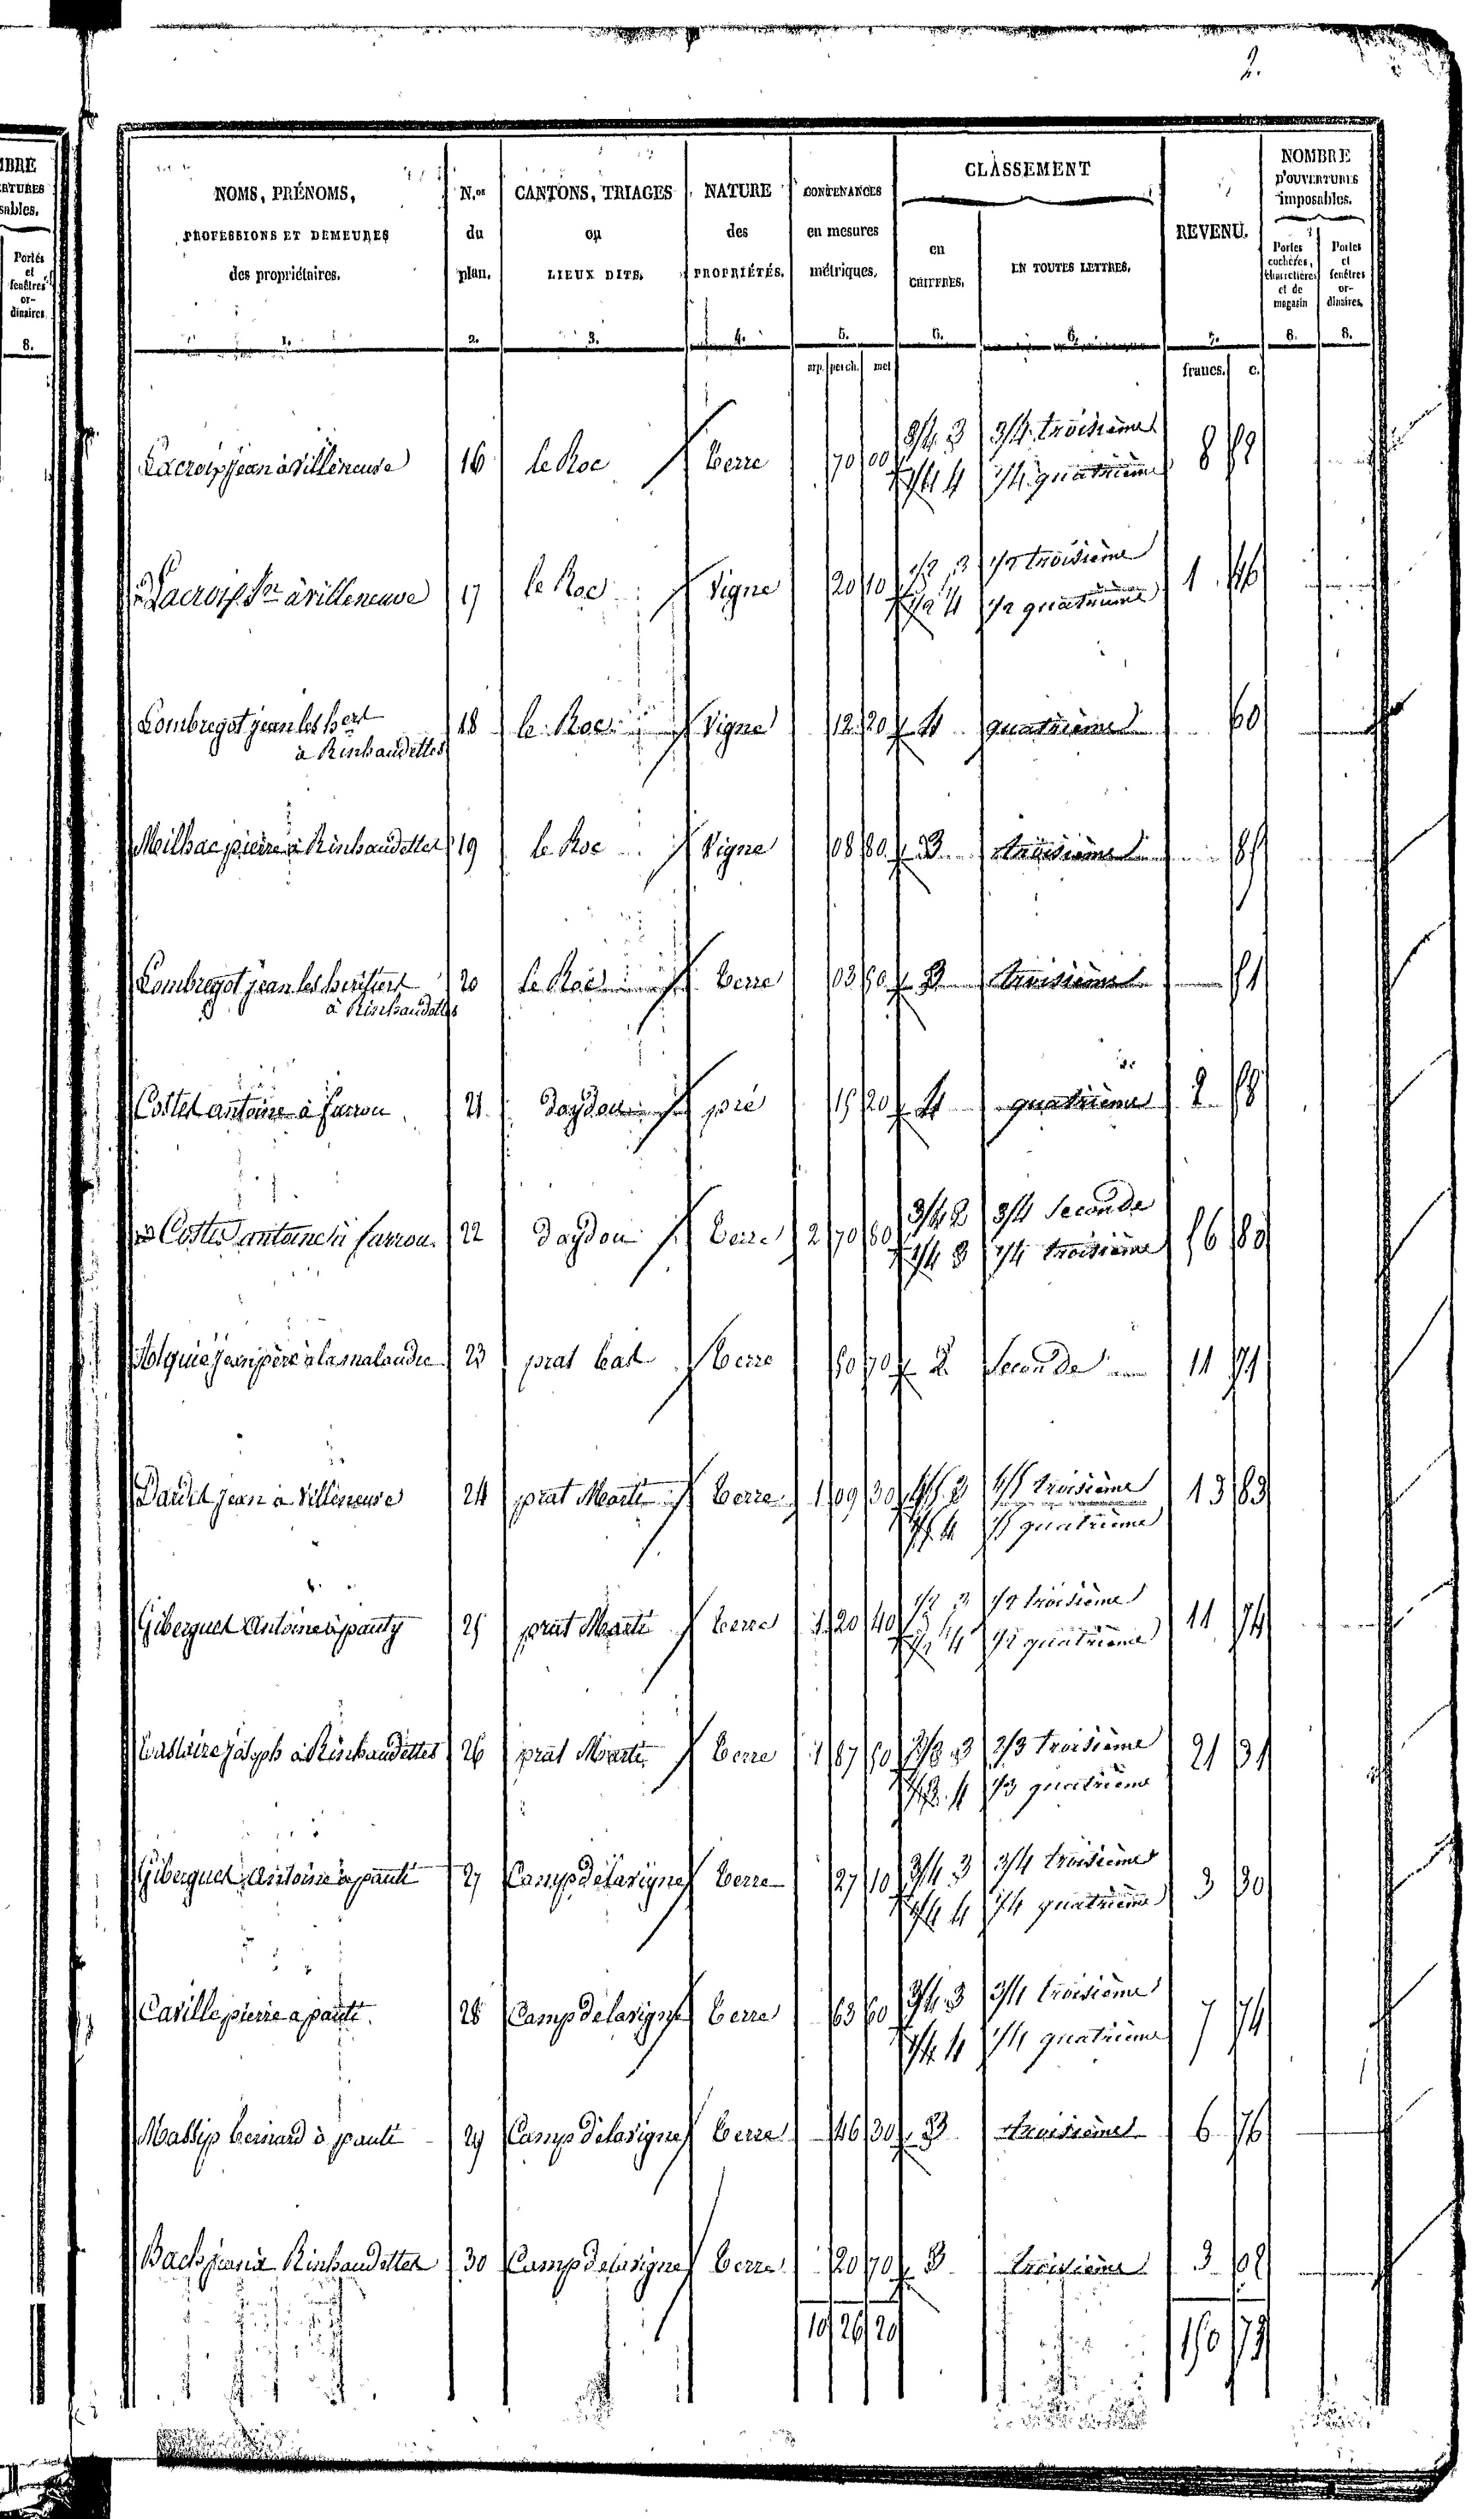 2.
NOMS, PRÉNOMS, PROFESSIONS ET DEMEURES des propriétaires. 1.
N.os du plan. 2.
CANTONS, TRIAGES ou LIEUX DITS. 3.
NATURE des PROPRIÉTÉS. 4.
CONTENANCES en mesures métriques. 5.
CLASSEMENT
en CHIFFRES. 6.
EN TOUTES LETTRES. 6.
REVENU. 7.
NOMBRE D'OUVERTURES imposables.
Portes cochères, charretières et de magasin 8.
Portes et fenêtres or-dinaires. 8.
arp. perch. met francs. c.
Lacroix jean à Villeneuve 16 le Roc terre 70 00 3/4 3 3/4 troisième 8
1/4 4 1/4 quatrième
Lacroix à villeneuve 17 le Roc Vigne 20 10 1/2 3 1/2 troisième 1 46
1/2 4 1/2 quatrième
Lombregot jean les hers 18 le Roc Vigne 12 20 4 quatrième 60
à Rinhaudettes
Meilhac pierre à Rinhaudettes 19 le Roc Vigne 08 80 3 troisième 85
Lombregot jean les heritiers 20 le Roc terre 03 50 3 troisième 51
à Rinhaudettes
Costes antoine à farrou 21 daydou pré 15 20 4 quatrième 2 58
Costes antoine à farrou 22 daydou terre 2 70 80 3/4 2 3/4 Seconde 56 85
1/4 3 1/4 troisième
jean père à la malaudie 23 prat terre 50 70 2 Seconde 11 71
jean à Villeneuve 24 prat Marti terre 1 09 30 4/5 3 4/5 troisième 13 83
1/5 4 1/5 quatrième
Gibergues Antoine à panty 25 prat Marti terre 1 20 40 1/2 3 1/2 troisième 11 74
1/2 4 1/2 quatrième
joseph à Rinhaudettes 26 prat Marti terre 1 87 50 2/3 3 2/3 troisième 21 31
1/3 4 1/3 quatrième
Gibergues Antoine à panti 27 Camp de la vigne terre 27 10 3/4 3 3/4 troisième 3 30
1/4 4 1/4 quatrième
Caville pierre a panti 28 Camp de la vigne terre 63 60 3/4 3 3/4 troisième 7 74
1/4 4 1/4 quatrième
Massip bernard à panti 29 Camp de la vigne terre 46 30 3 troisième 6 76
Bach jean à Rinhaudettes 30 Camp de la vigne terre 20 70 3 troisième 3 02
10 26 20 150 73